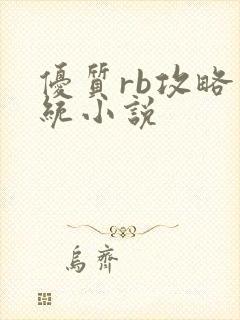 優質rb攻略
統小說
烏齊